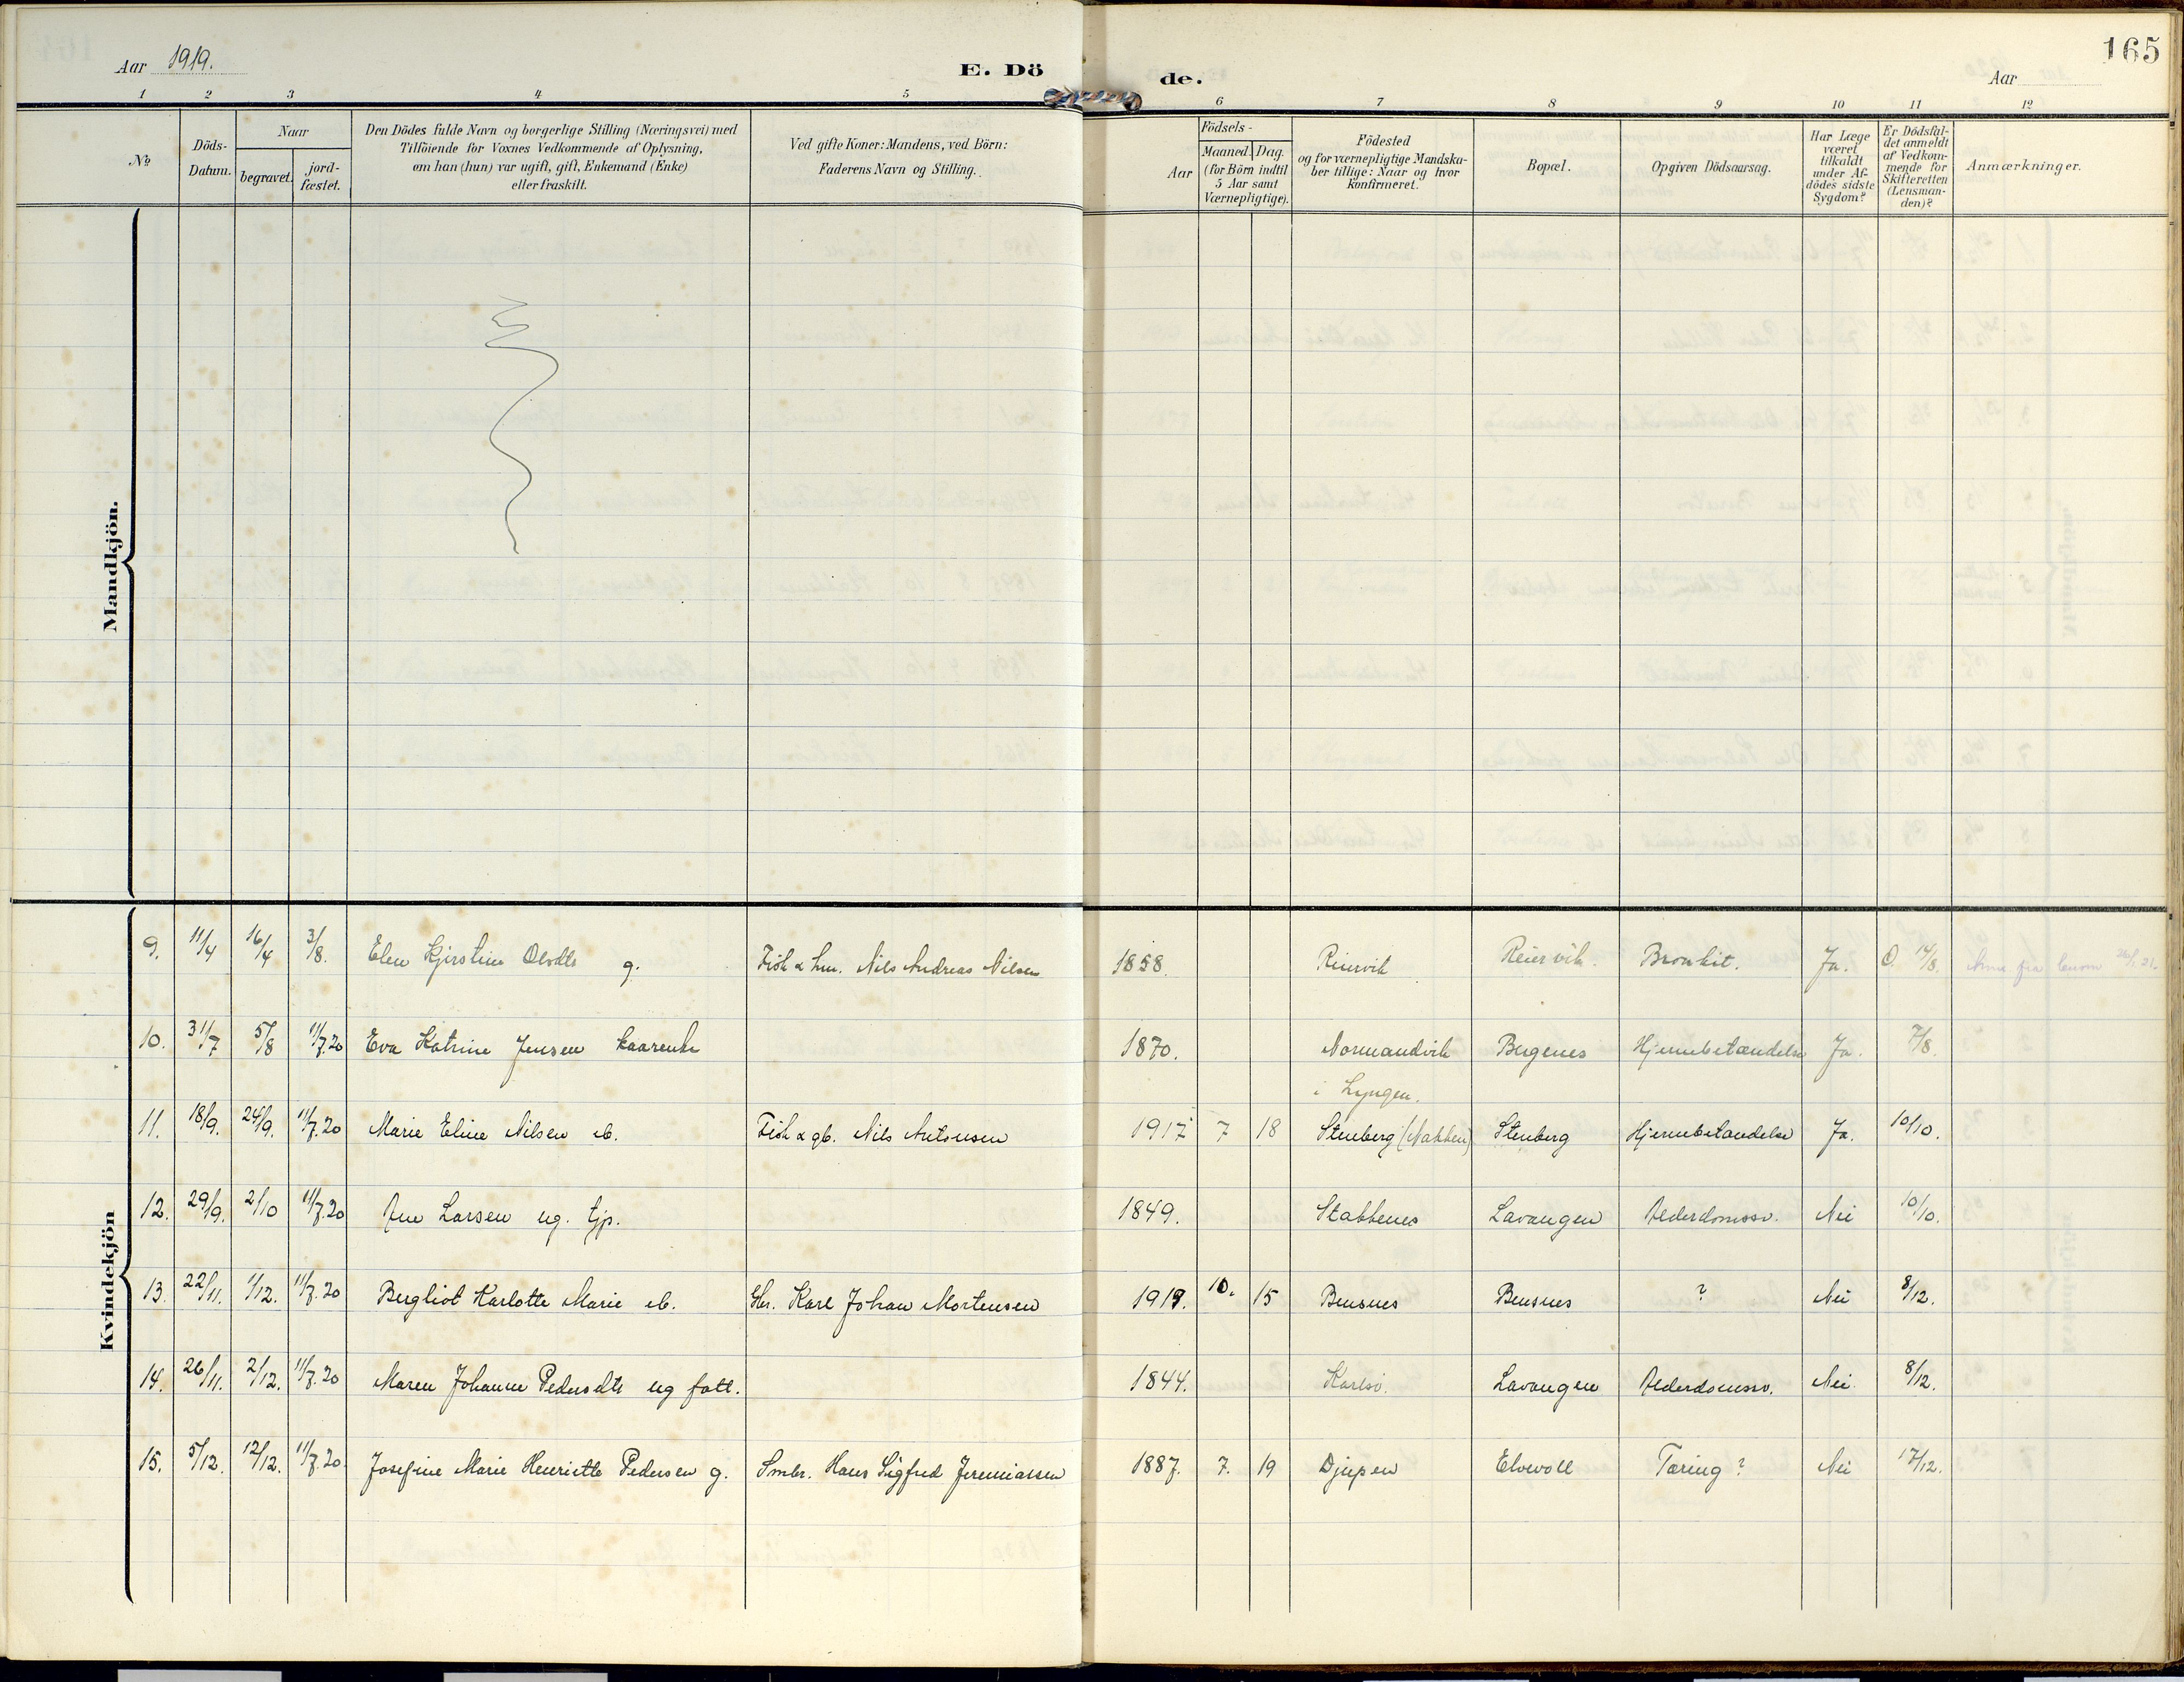 165
Aar 1919.
E. Dö
de.
Aar
1 2 3 4 5 6 7 8 9 10 11 12
No
Döds-
Datum.
Naar
begravet.
jord-
fæstet.
Den Dödes fulde Navn og borgerlige Stilling (Næringsvei) med
Tilföiende for Voxnes Vedkommende af Oplysning,
om han (hun) var ugift, gift, Enkemand (Enke)
eller fraskilt.
Ved gifte Koner: Mandens, ved Börn:
Faderens Navn og Stilling.
Födsels-
Aar
Maaned. Dag.
(for Börn indtil
5 Aar samt
Værnepligtige).
Födested
og for værnepligtige Mandska-
ber tillige: Naar og hvor
konfirmeret.
Bopæl.
Opgiven Dödsaarsag.
Har Læge
været
tilkaldt
under Af-
dödes sidste
Sygdom?
Er Dödsfal-
det anmeldt
af Vedkom-
mende for
Skifteretten
(Lensman-
den)?
Anmærkninger.
Mandkjön.
Kvindekjön
9. 11/4 16/4 3/8. Elen Kjirstine Olsdtr g. Fisk & hm. Nils Andreas Nilsen 1858. Reiervik Reiervik. Bronkit. Ja. 14/8. fra
10. 31/7 5/8 11/7.20 Eva Katrine Jensen kaarenke 1870. Normandvik Bergenes Hjernebetændelse Ja. 7/8.
i Lyngen.
11. 18/9. 24/9. 11/7.20 Marie Eline Nilsen b. Fisk & gb. Nils Antonsen 1917 7 18 Stenberg (Nakken) Stenberg Hjernebetændelse Ja. 10/10.
12. 29/9. 2/10 11/7.20 Ane Larsen ug. tjp. 1849. Stakkenes Lavangen Alderdomssv. Nei 10/10.
13. 22/11. 1/12. 11/7.20 Bergliot Karlotte Marie b. Gbr. Karl Johan Mortensen 1919. 10. 15 Bensnes Bensnes ? Nei 8/12.
14. 26/11. 2/12. 11/7.20 Maren Johanne Pedersdtr ug fatt. 1844. Karlsö. Lavangen Alderdomssv. Nei. 8/12.
15. 5/12. 12/12. 11/7.20 Josefine Marie Henriette Pedersen g. Smbr. Hans Sigfred Jeremiassen 1887. 7. 19 Djupen Elvevoll Tæring? Nei 17/12.